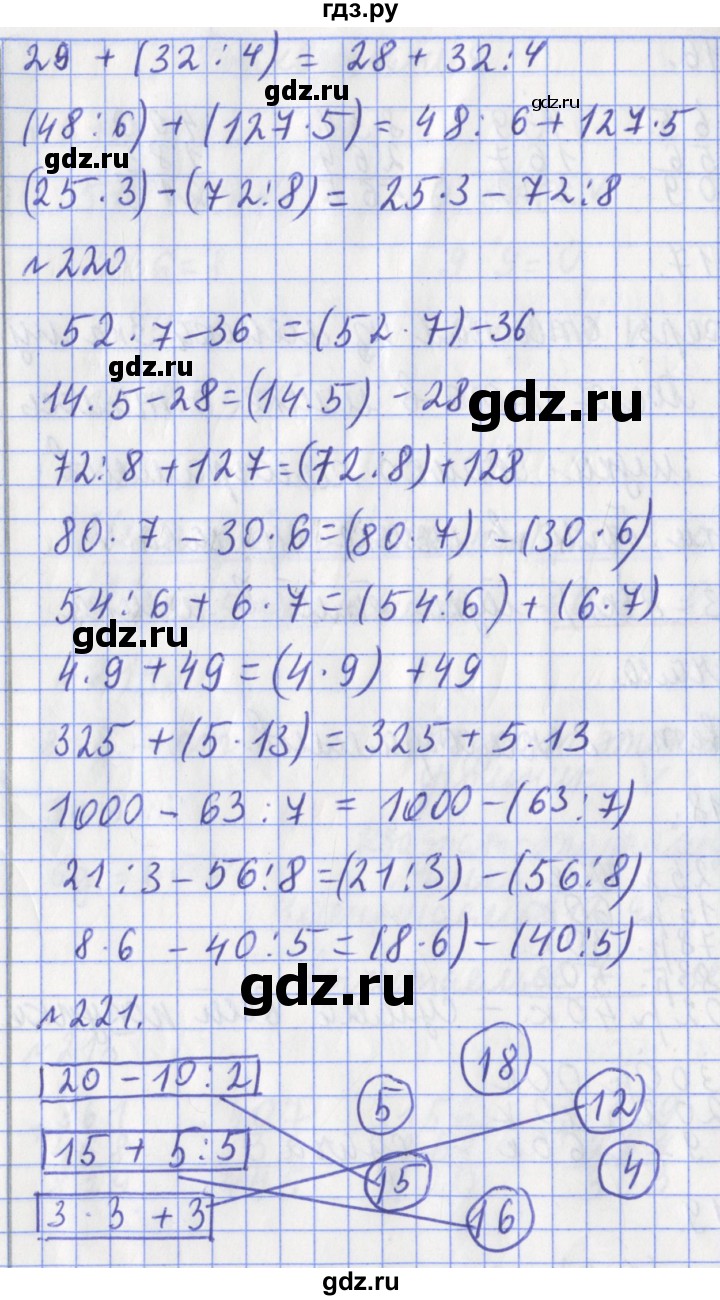 гдз.ру
29 + (32 : 4) = 28 + 32 : 4
gdz.ru
gdz.ru
(48 : 6) + (127 · 5) = 48 : 6 + 127 · 5
gdz.ru
(25 · 3) - (72 : 8) = 25 · 3 - 72 : 8
№220
52 · 7 - 36 = (52 · 7) - 36
gdz.ru
14 · 5 - 28 = (14 · 5) - 28
gdz.ru
72 : 8 + 127 = (72 : 8) + 128
80 · 7 - 30 · 6 = (80 · 7) - (30 · 6)
54 : 6 + 6 · 7 = (54 : 6) + (6 · 7)
gdz.ru
4 · 9 + 49 = (4 · 9) + 49
325 + (5 · 13) = 325 + 5 · 13
1000 - 63 : 7 = 1000 - (63 : 7)
21 : 3 - 56 : 8 = (21 : 3) - (56 : 8)
8 · 6 - 40 : 5 = (8 · 6) - (40 : 5)
gdz.ru
№221.
20 - 10 : 2
18
5
12
15 + 5 : 5
4
15
3 · 3 + 3
16
gdz.ru